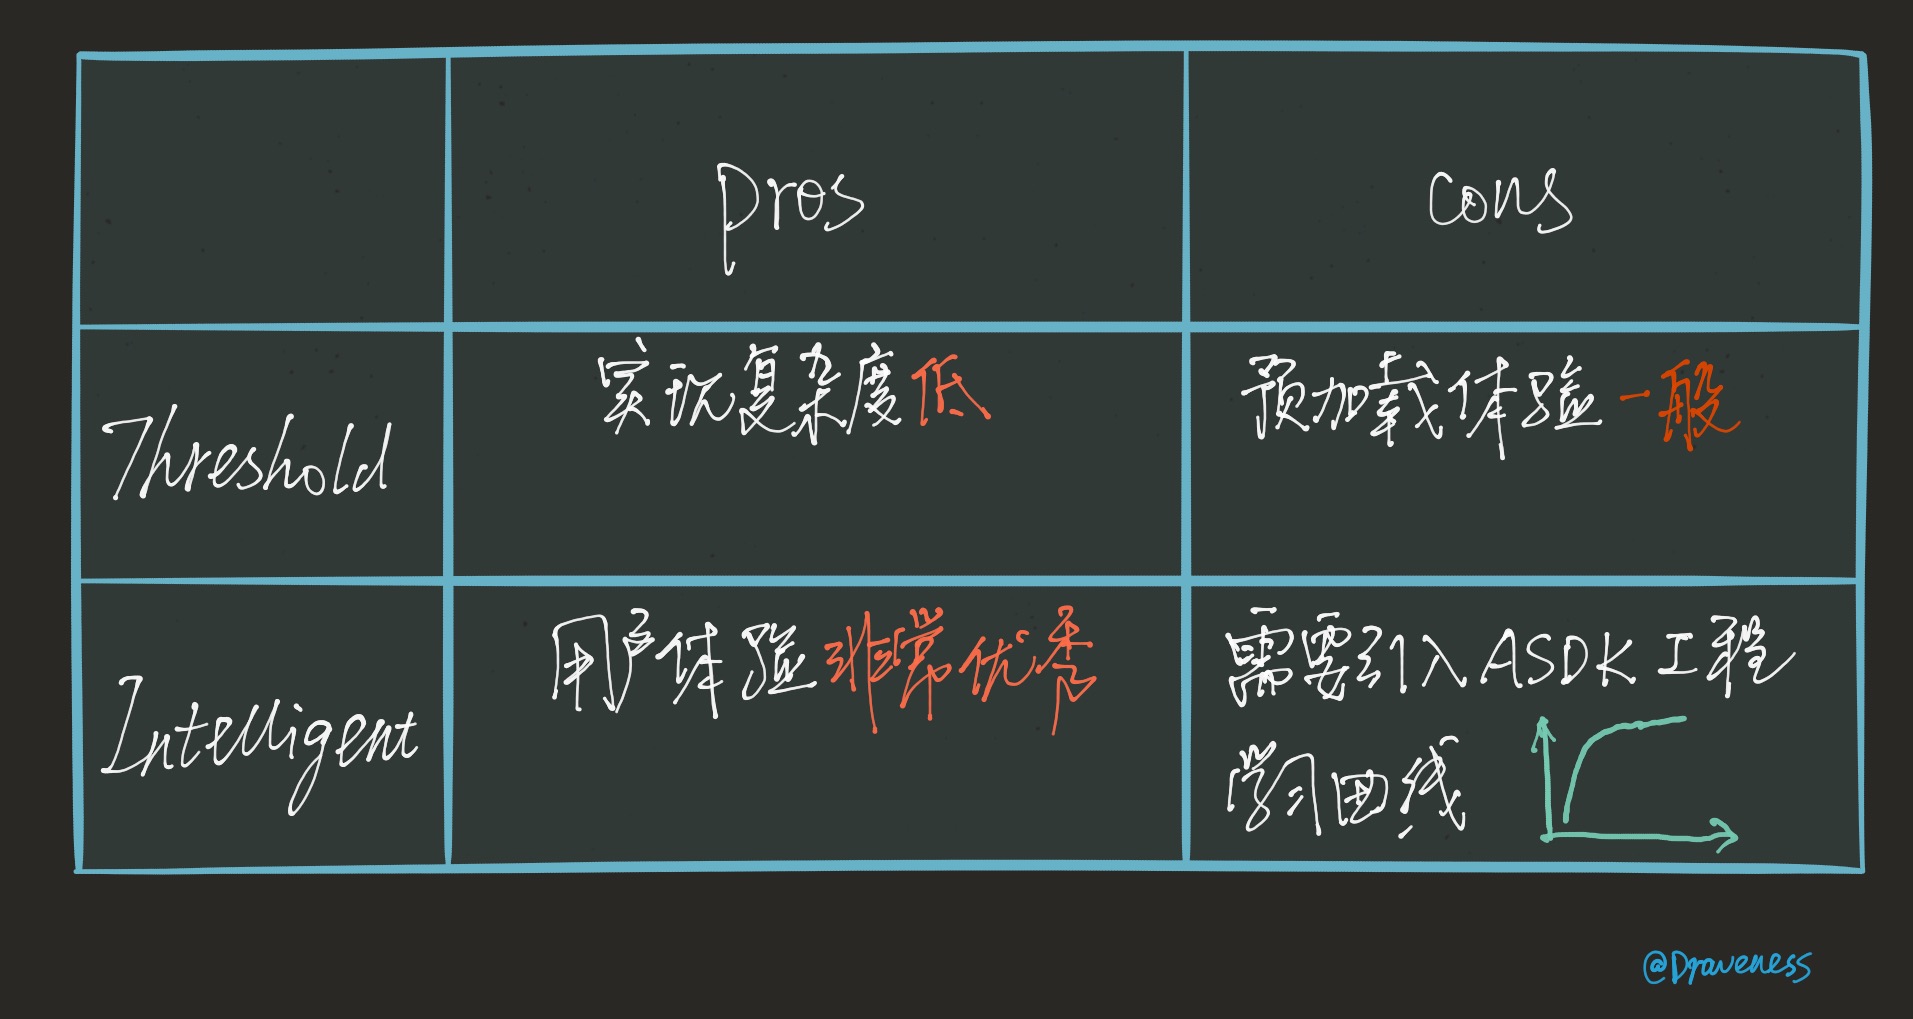 pros
cons
Threshold
实现复杂度低
预加载体验一般
Intelligent
用户体验非常优秀
需要引入ASDK工程
学习曲线
@Draveness